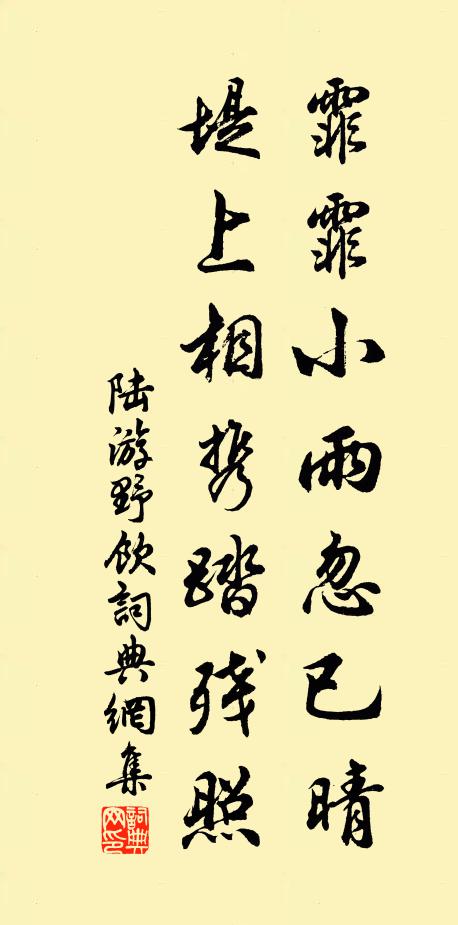 霏霏小雨忽已晴
堤上相携踏残照
陆游野饮詞典網集
詞典网印